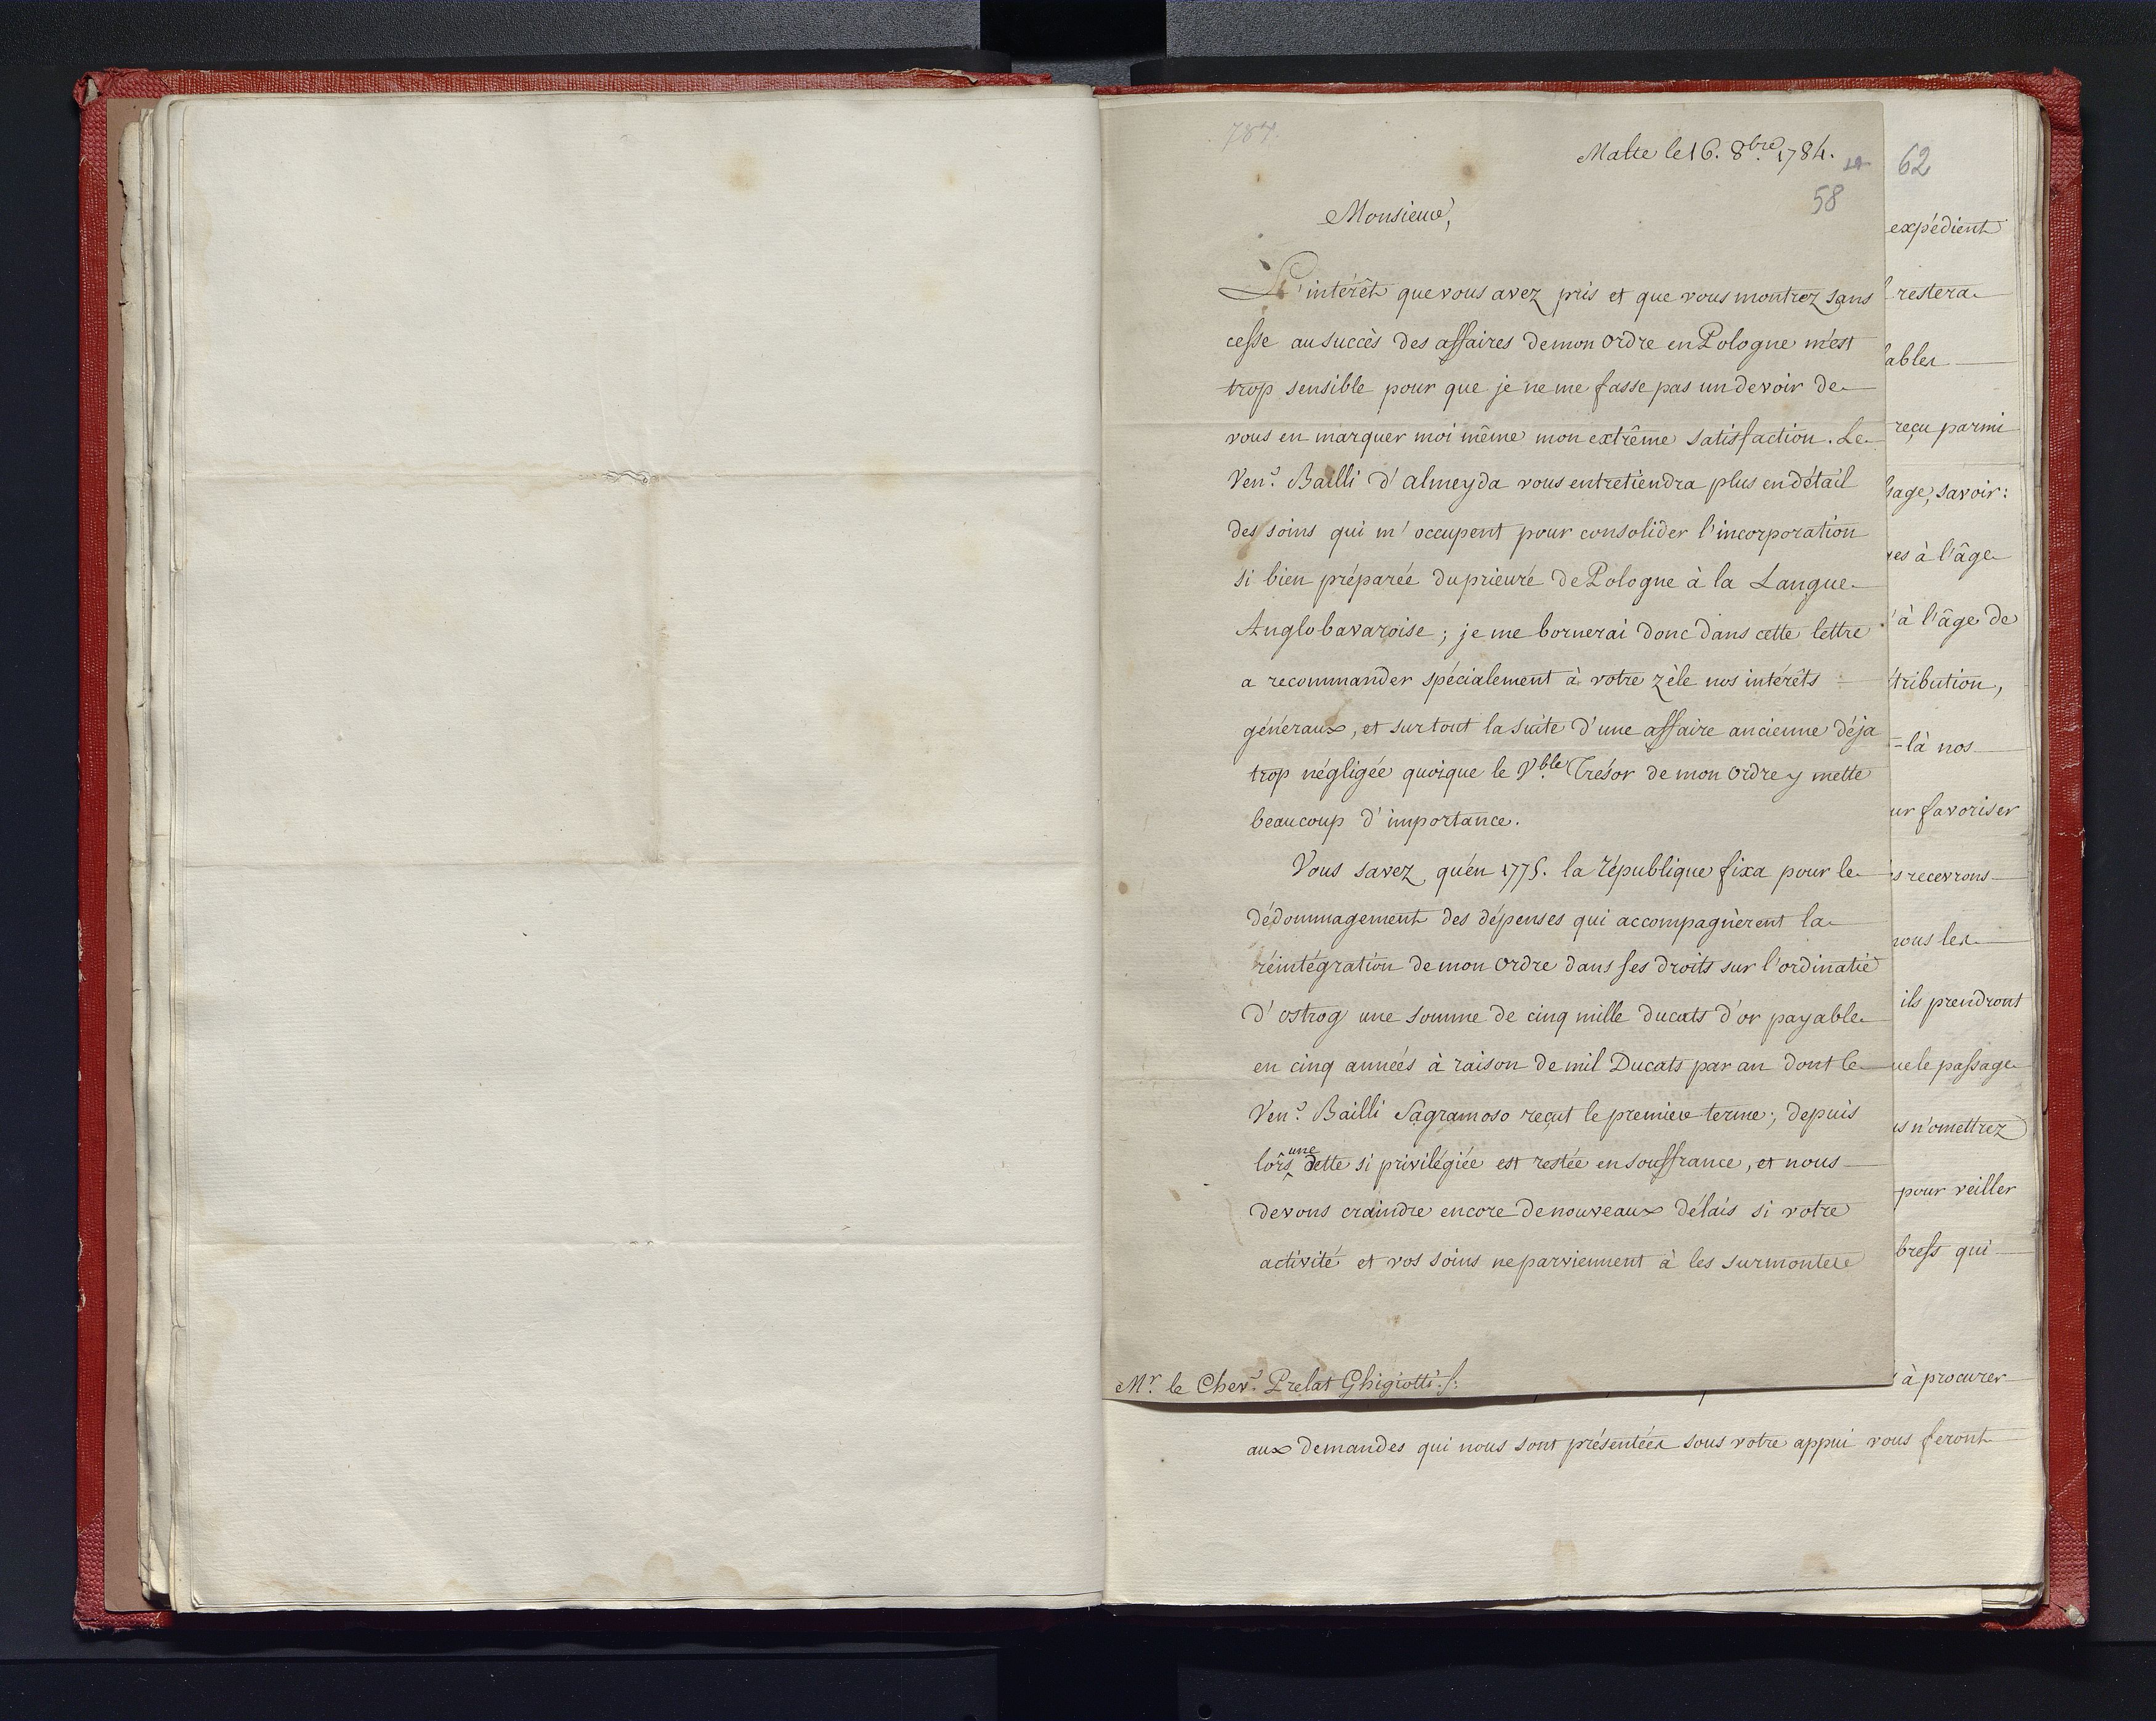 787.
Malte le 16. 8bre. 1784.
58
Monsieur,
L'intérêt que vous avez pris et que vous montrez sans
cesse au succès des affaires de mon Ordre en Pologne m'est
trop sensible pour que je ne me fasse pas un devoir de
vous en marquer moi même mon extrême satisfaction. Le
Ven.e Bailli d'almeyda vous entretiendra plus en détail
des soins qui m'occupent pour consolider l'incorporation
si bien préparée du prieuré de Pologne à la Langue
Anglobavaroise; je me bornerai donc dans cette lettre
a recommander spécialement à votre zèle nos intérêts
généraux, et surtout la suite d'une affaire ancienne déja
trop négligée quoique le Vble Trésor de mon Ordre y mette
beaucoup d'importance.
Vous savez qu'en 1775. la république fixa pour le
dédommagement des dépenses qui accompagnèrent la
réintégration de mon Ordre dans ses droits sur l'ordinatie
d'ostrog une somme de cinq mille ducats d'or payable
en cinq années à raison de mil Ducats par an dont le
Ven.e Bailli Sagramoso reçut le premier terme; depuis
lors une dette si privilégiée est restée en souffrance, et nous
devons craindre encore de nouveaux délais si votre
activité et vos soins ne parviennent à les surmonter
Mr. le Chev.r Prelat Ghigiotti
62
expédient
restera
ables
reçu parmi
sage, savoir:
res à l'âge
'à l'âge de
tribution,
=là nos
ur favoriser
s recevrons
nous les
ils prendront
ue le passage
s n'omettrez
pour veiller
brefs qui
à procurer
aux demandes qui nous sont présentées sous votre appui vous feront